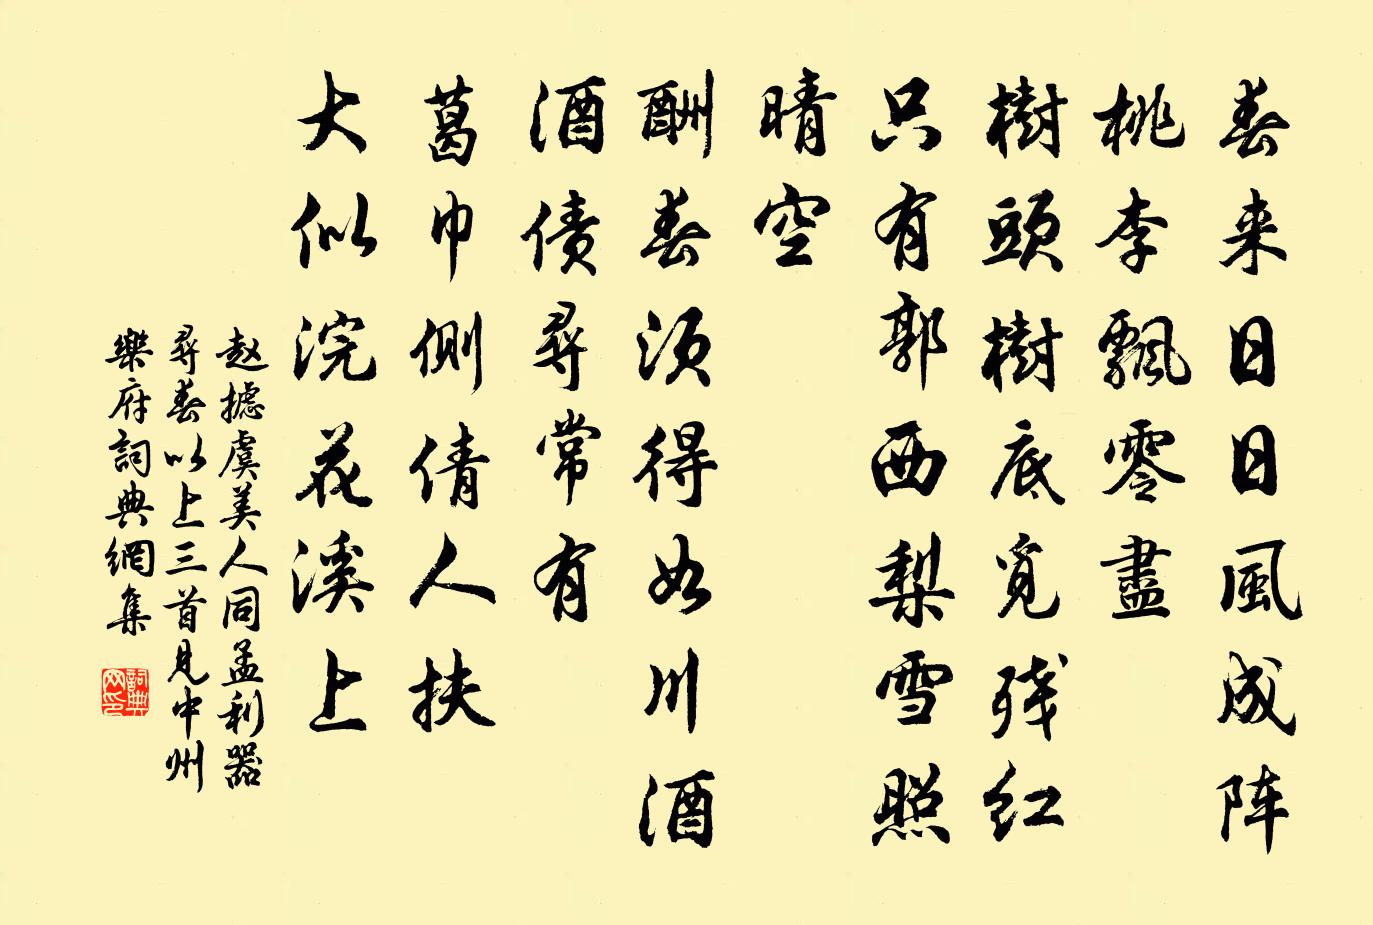 春来日日風成阵
桃李飄零盡
樹頭樹底覓残红
只有郭西梨雪照
晴空
酬春须得如川酒
酒债尋常有
葛巾側倩人扶
大似浣花溪上
赵摅虞美人同孟利器
尋春以上三首见中州
樂府詞典網集
詞典
网印